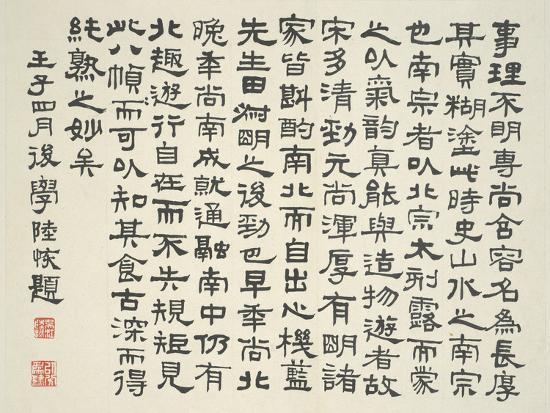 事理不明專尚含容名為長厚
其實糊塗此時史山水之南宗
也南宗者以北宗太刑露而蒙
之以氣韵真能與造物遊者故
宋多清勁元尚渾厚有明諸
家皆斟酌南北而自出心機藍
先生田叔明之後勁也早年尚北
晚年尚南成就通融南中仍有
北趣遊行自在而不失規矩見
此八幀而可以知其食古深而得
純熟之妙矣
壬子四月後學陸恢題